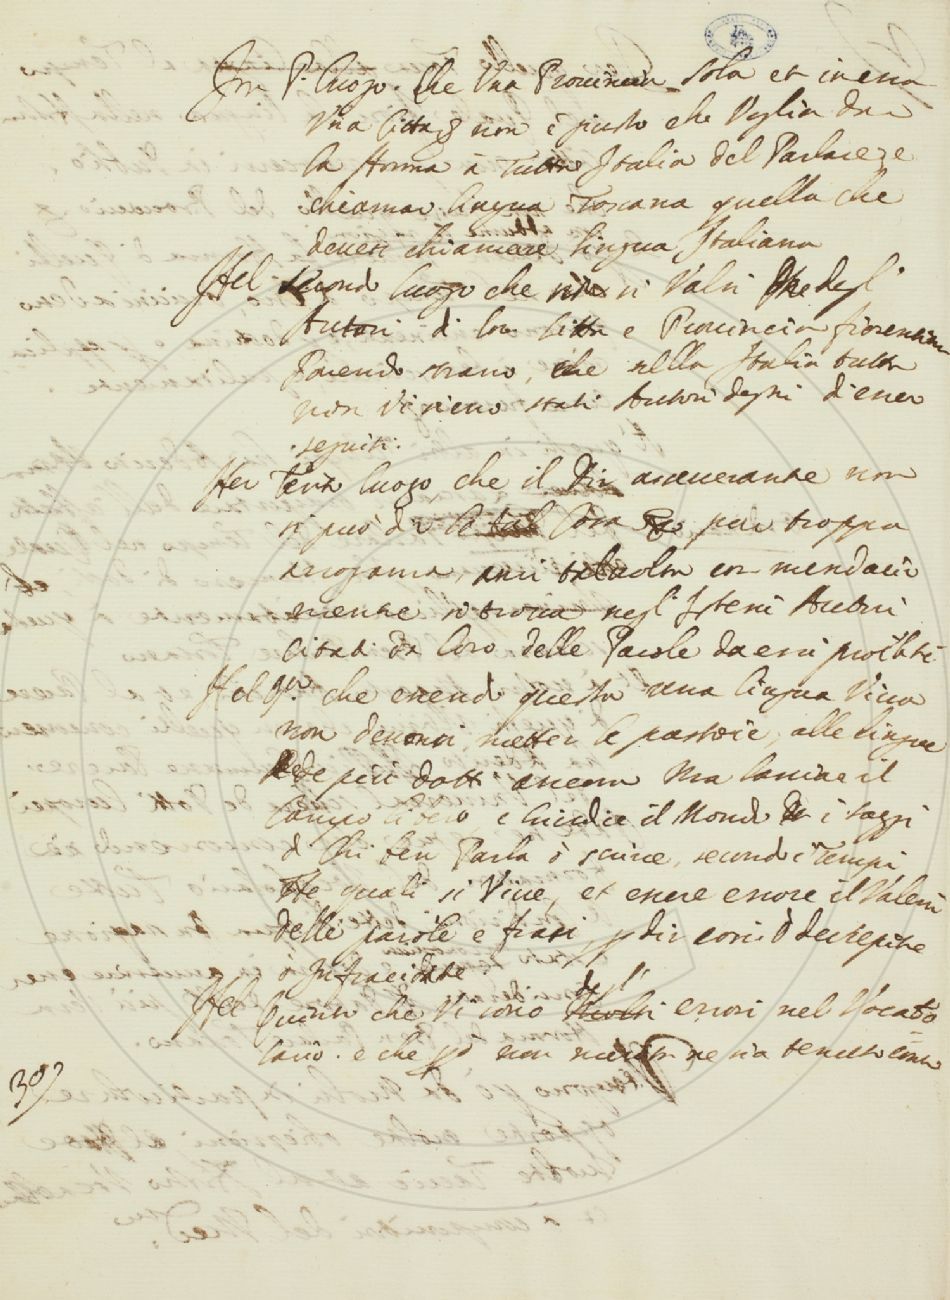 In P.º luogo. Che Una Provincia sola et in essa
Una Città non è giusto che Voglia dar
la Norma à Tutta Italia del Parlare, e
chiamar lingua Toscana quella che
devesi chiamare lingua Italiana
Nel secondo luogo che si Valsi degli
Autori di lor Città e Provincia fiorentina
Parendo strano, che nella Italia tutta
non Vi sieno stati Autori degni d'esser
seguiti.
Nel Terzo luogo che il Dir asseverante non
si può dir senza troppa
arroganza, anzi talvolta con mendacio
mentre si trova negl'Istessi Autori
Citati da loro delle Parole da essi proibite
Nel q.º che essendo questa una lingua Viva
non devonsi metter le pastoie, alle lingue
de più dotti ancora Ma lasciare il
Campo libero e Giudice il Mondo i saggi
di Chi ben Parla ò scrive, secondo i Tempi
Ne quali si Vive, et essere errore il Valersi
delle parole e frasi, p dir così ò decrepite
ò Infracidate
Nel Quinto che Vi sono degl' errori nel Vocabo
lario. e che non ne sia tenuto conto
30